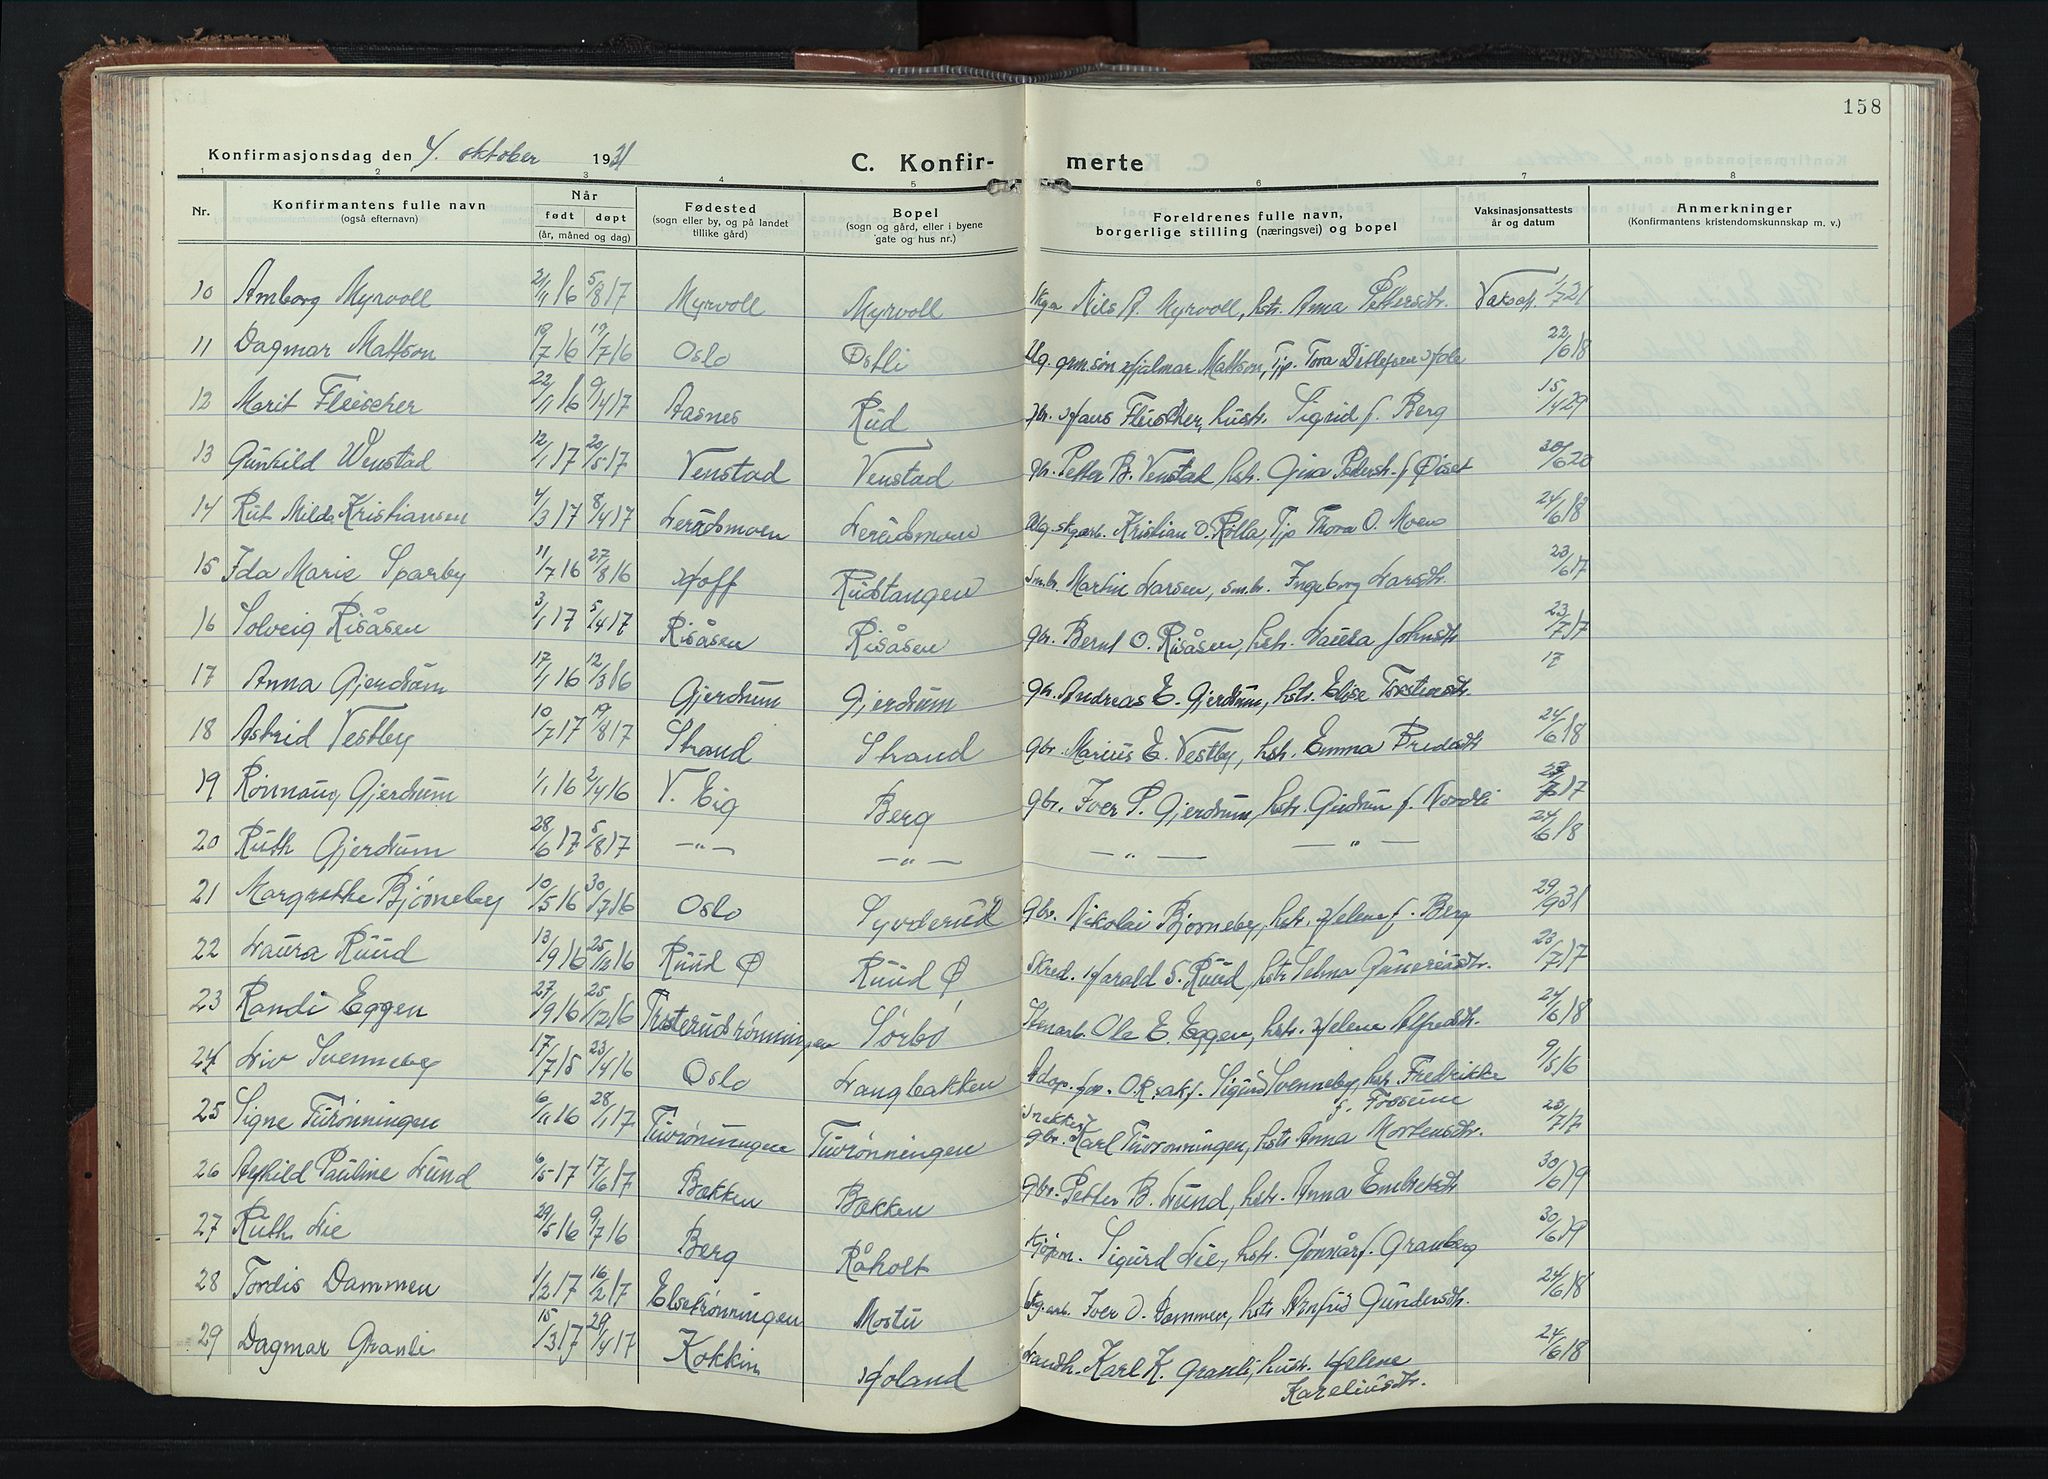 158
Konfirmasjonsdag den 4. oktober 1931
C. Konfir- merte
1 2 3 4 5 6 7 8
Nr. Konfirmantens fulle navn (også efternavn) Når født døpt (år, måned og dag) Fødested (sogn eller by, og på landet tillike gård) Bopel (sogn og gård, eller i byene gate og hus nr.) Foreldrenes fulle navn, borgerlige stilling (næringsvei) og bopel Vaksinasjonsattests år og datum Anmerkninger (Konfirmantens kristendomskunnskap m. v.)
10 Amborg Myrvoll 21/11 16 5/8 17 Myrvoll Myrvoll Nils A. Myrvoll, hstr. Anna Pettersdtr. 1/7 21
11 Dagmar Mattson 19/7 16 19/7 16 Oslo Østli Ug. grm.søn Hjalmar Mattson, Tjp. Tora Ditlefsen Hole 22/6 18
12 Marit Fleischer 22/11 16 9/4 17 Aasnes Rud Hans Fleischer, hustr. Sigrid f. Berg 15/4 29
13 Gunhild Wenstad 12/1 17 20/5 17 Venstad Venstad gbr. Petter B. Venstad, hstr. Gina Pedersdtr. f. Øiset 30/6 20
14 Rut Milda Kristiansen 4/3 17 8/4 17 Lerudsmoen Lerudsmoen Ug. skgarb. Kristian O. Rølla, Tjp Thora O. Moen 24/6 18
15 Ida Marie Sparby 11/7 16 27/8 16 Hoff Rudstangen Smbr. Martin Larsen, smbr. Ingeborg Larsdtr. 23/6 17
16 Solveig Risåsen 3/1 17 5/4 17 Risåsen Risåsen gbr. Bernt O. Risåsen, hstr. Laura Johnsdtr 23/7 17
17 Anna Gjerdrum 17/1 16 12/3 16 Gjerdrum Gjerdrum gbr. Andreas E. Gjerdrum, hstr. Elise Torstensdtr. 17
18 Astrid Vestby 10/7 17 19/8 17 Strand Strand gbr. Marius E. Vestby, hstr. Emma Predsdtr 24/6 18
19 Rønnaug Gjerdrum 1/1 16 2/4 16 V. Eig Berg gbr. Iver P. Gjerdrum, hstr. Gudrun f. Nordli 27/7 17
20 Ruth Gjerdrum 28/6 17 5/8 17 —"— —"— —"— —"— 24/6 18
21 Margrethe Bjørneby 10/5 16 30/7 16 Oslo Syverud gbr. Nikolai Bjørneby, hstr. Helene f. Berg 29/9 31
22 Laura Ruud 13/9 16 25/12 16 Ruud Ø Ruud Ø Skred. Harald S. Ruud, hstr Selma Guneriusdtr. 23/7 17
23 Randi Eggen 27/9 16 25/12 16 Trosterudrønningen Sørbø Stenarb. Ole E. Eggen, hstr. Helene Alfredsdtr. 24/6 18
24 Liv Svenneby 17/7 15 23/4 16 Oslo Langbakken Adop. for. O.R.sakf. Sigurd Svenneby, hstr. Fredrikke f. Fossum 9/5 16
25 Signe Turønningen 6/11 16 28/1 17 Turønningen Turønningen Snekker gbr. Karl Turønningen, hstr Anna Mortensdtr. 23/7 17
26 Aghild Pauline Lund 6/5 17 17/6 17 Bakken Bakken gbr. Petter B. Lund, hstr. Anna Embretsdtr 30/6 19
27 Ruth Lie 29/5 16 9/7 16 Berg Råholt Kjøpm. Sigurd Lie, hstr. Gunnår f. Granberg 30/6 19
28 Tordis Dammen 1/2 17 16/2 17 Elsetrønningen Mostu Skg.arb. Iver O. Dammen, hstr Arnfrid Gundersdtr. 24/6 18
29 Dagmar Granli 15/3 17 29/4 17 Kokkin Holand Landh. Karl K. Granli, hustr. Helene Kareliusdtr. 24/6 18